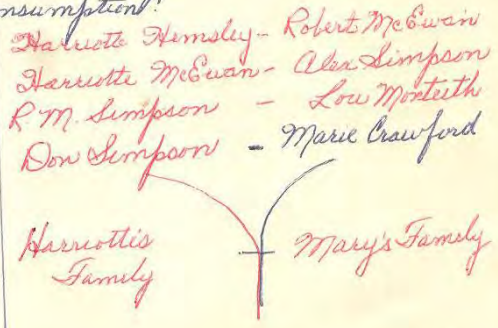 nsumption!
Harriotte Hemsley - Robert McEwan
Harriotte McEwan - Alex Simpson
R. M. Simpson - Lou Monteith
Don Simpson - Marie Crawford
Harriotti's Mary's Family
Family